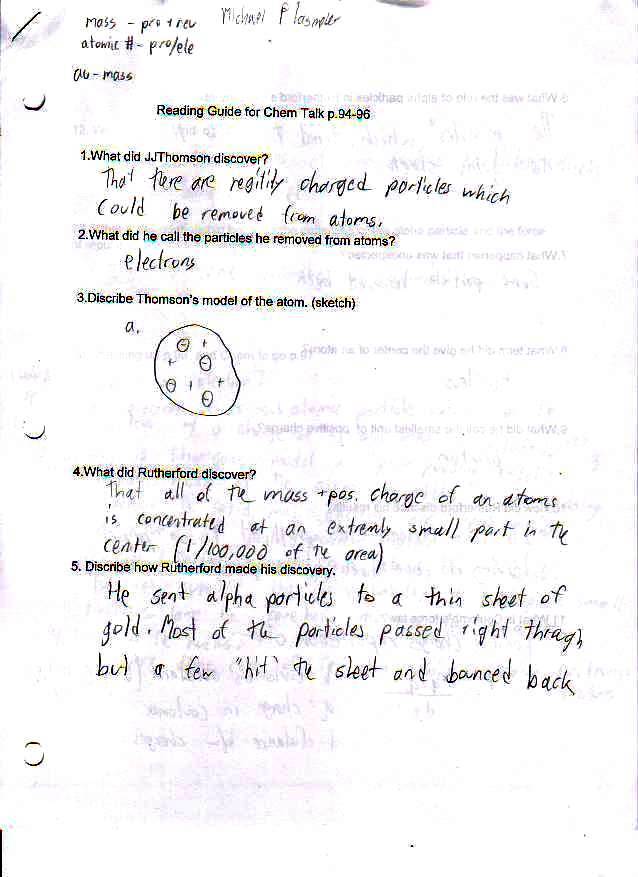 mass - pro + neu Michael
atomic # - pro/ele
au - mass
Reading Guide for Chem Talk p.94-96
1.What did JJThomson discover?
That there are regitily charged particles which
could be removed from atoms.
2.What did he call the particles he removed from atoms?
electrons
3.Discribe Thomson's model of the atom. (sketch)
a.
4.What did Rutherford discover?
That all of the mass + pos. charge of an atoms
is concentrated at an extremly small part in the
center (1/100,000 of the area)
5. Discribe how Rutherford made his discovery.
He sent alpha particles to a thin sheet of
gold. Most of the particles passed right thragh
but a few "hit" the sheet and banced back